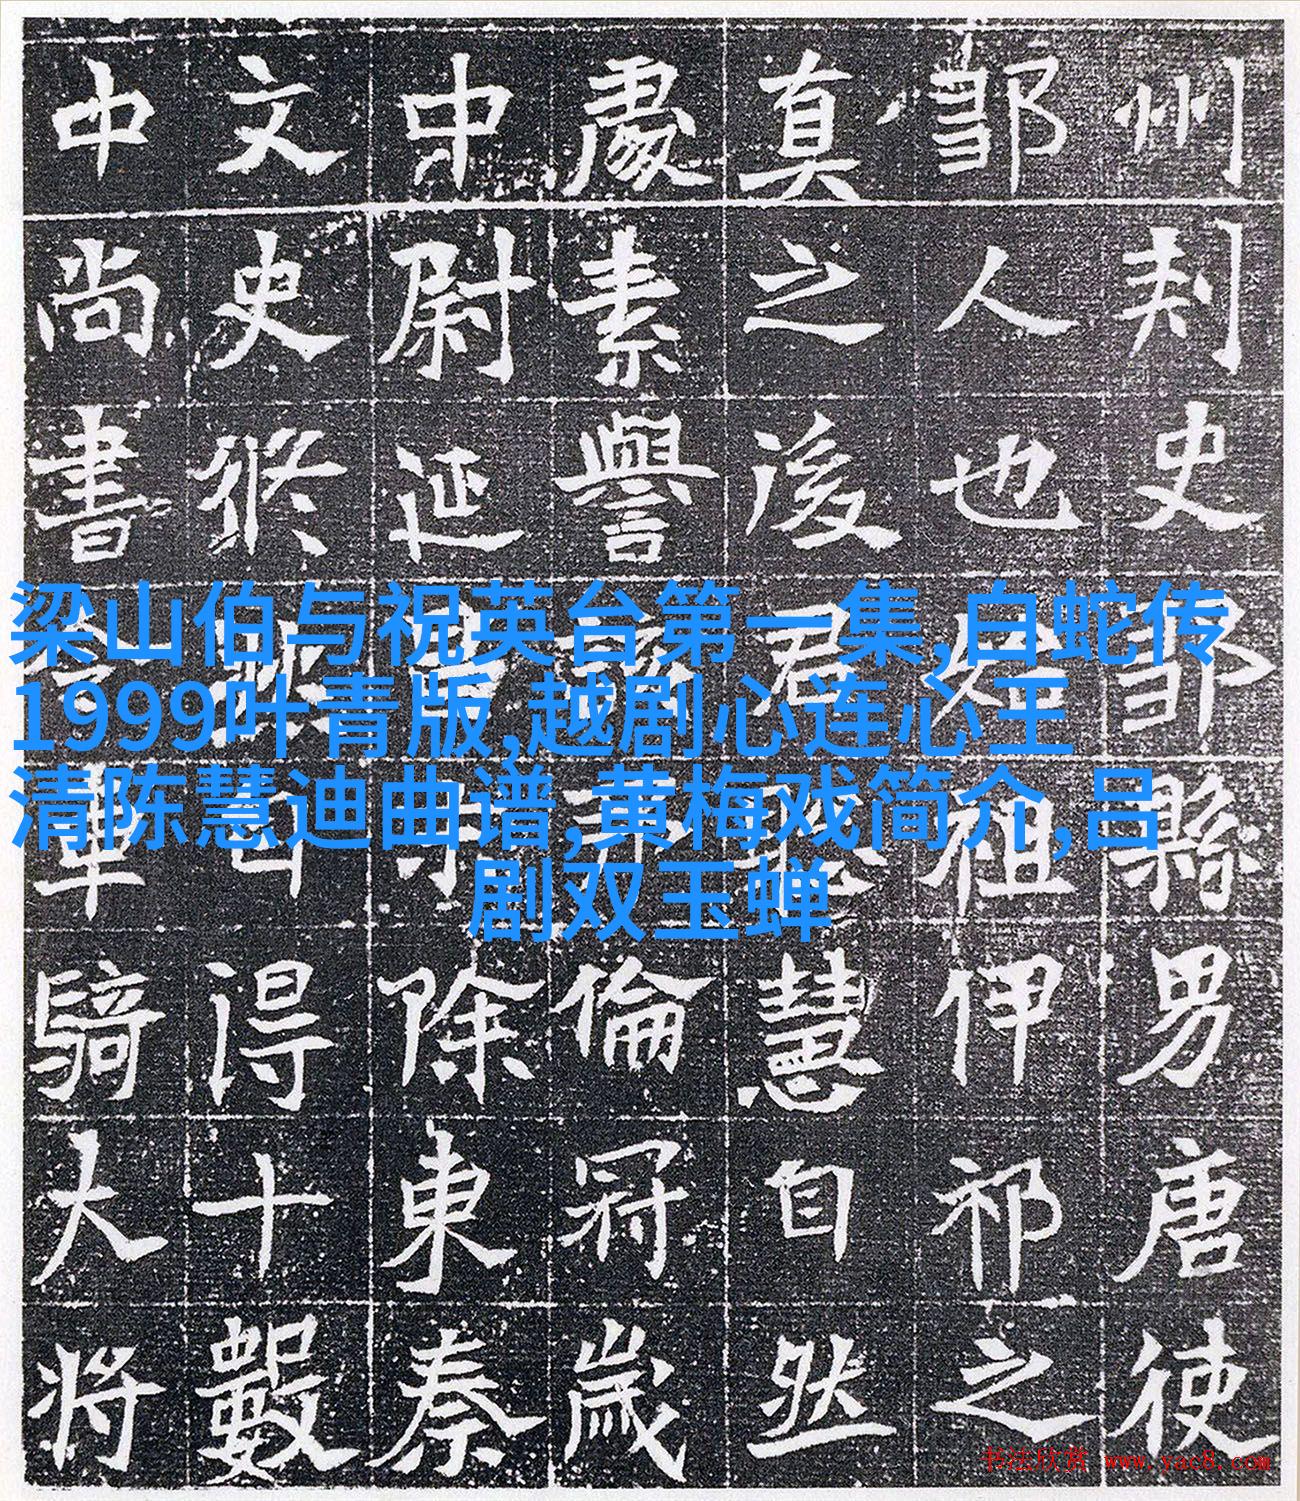 州刾史鄒縣男唐使
鄒人也祖伊祁之
真之後君慧自然
處素譽倫冠歲
中尉延除東秦
文史得十數
中尚書騎大將
梁山伯与祝英台第一集,白蛇传
1999叶青版,越剧心连心王
清陈慧迪曲谱,黄梅戏简介,吕
剧双玉蝉
书法欣赏 www.yac8.com